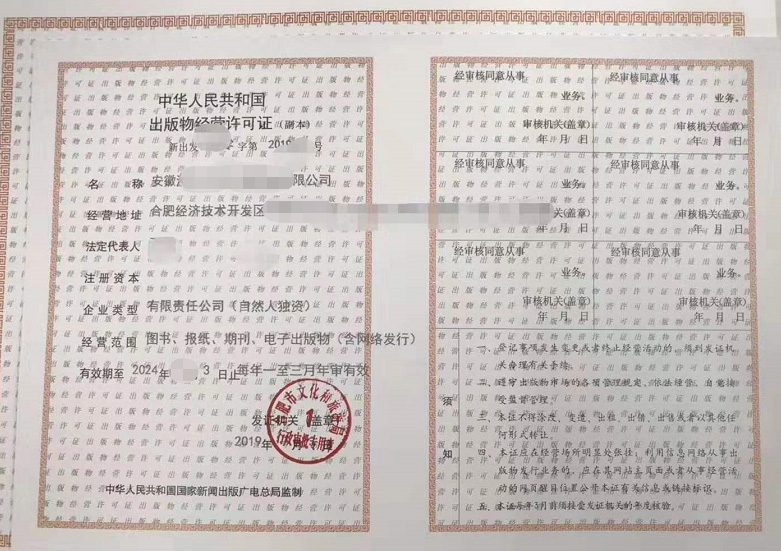 中华人民共和国
出版物经营许可证（副本）
新出发 字第 2019 号
名 称 安徽 有限公司
经营地址 合肥经济技术开发区
法定代表人
注册资本
企业类型 有限责任公司（自然人独资）
经营范围 图书、报纸、期刊、电子出版物（含网络发行）
有效期至 2024年 3 日止每年一至三月年审有效
发证机关（盖章）
2019年
合肥市文化和旅游局
1
行政审批专用章
中华人民共和国国家新闻出版广电总局监制
经审核同意从事
业务。
审核机关(盖章)
年 月 日
经审核同意从事
业务。
审核机关(盖章)
年 月 日
经审核同意从事
业务。
审核机关(盖章)
年 月 日
经审核同意从事
业务。
审核机关(盖章)
年 月 日
经审核同意从事
业务。
审核机关(盖章)
年 月 日
经审核同意从事
业务。
审核机关(盖章)
年 月 日
须知
一、登记事项发生变更或者终止经营活动的，须到发证机
关办理有关手续。
二、遵守出版物市场的各项管理规定，依法经营，自觉接
受监督管理。
三、本证不得涂改、变造、出租、出借、出售或者以其他任
何形式转让。
四、本证应在经营场所明显处张挂；利用信息网络从事出
版物发行业务的，应在其网站主页面或者从事经营活
动的网页醒目位置公开本证有关信息或链接标识。
五、本证每年3月前须接受发证机关的年度核验。